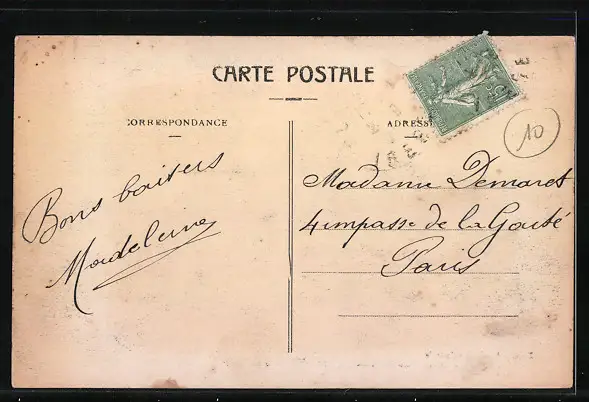 CARTE POSTALE
CORRESPONDANCE
ADRESSE
10
Bons baisers
Madeleine
Madame Demaret
4 impasse de la Gaité
Paris